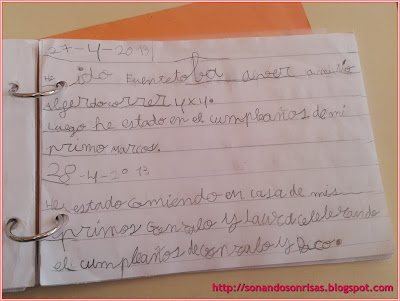 27-4-2013
He ido Fuentetoba a ver a mulio
algerdo correr 4x4.
Luego he estado en el cumpleaños de mi
primo Marcos.
28-4-2013
He estado comiendo en casa de mis
primos Gonzalo y Laura celebrando
el cumpleaños de Gonzalo y Paco.
http://sonandosonrisas.blogspot.com